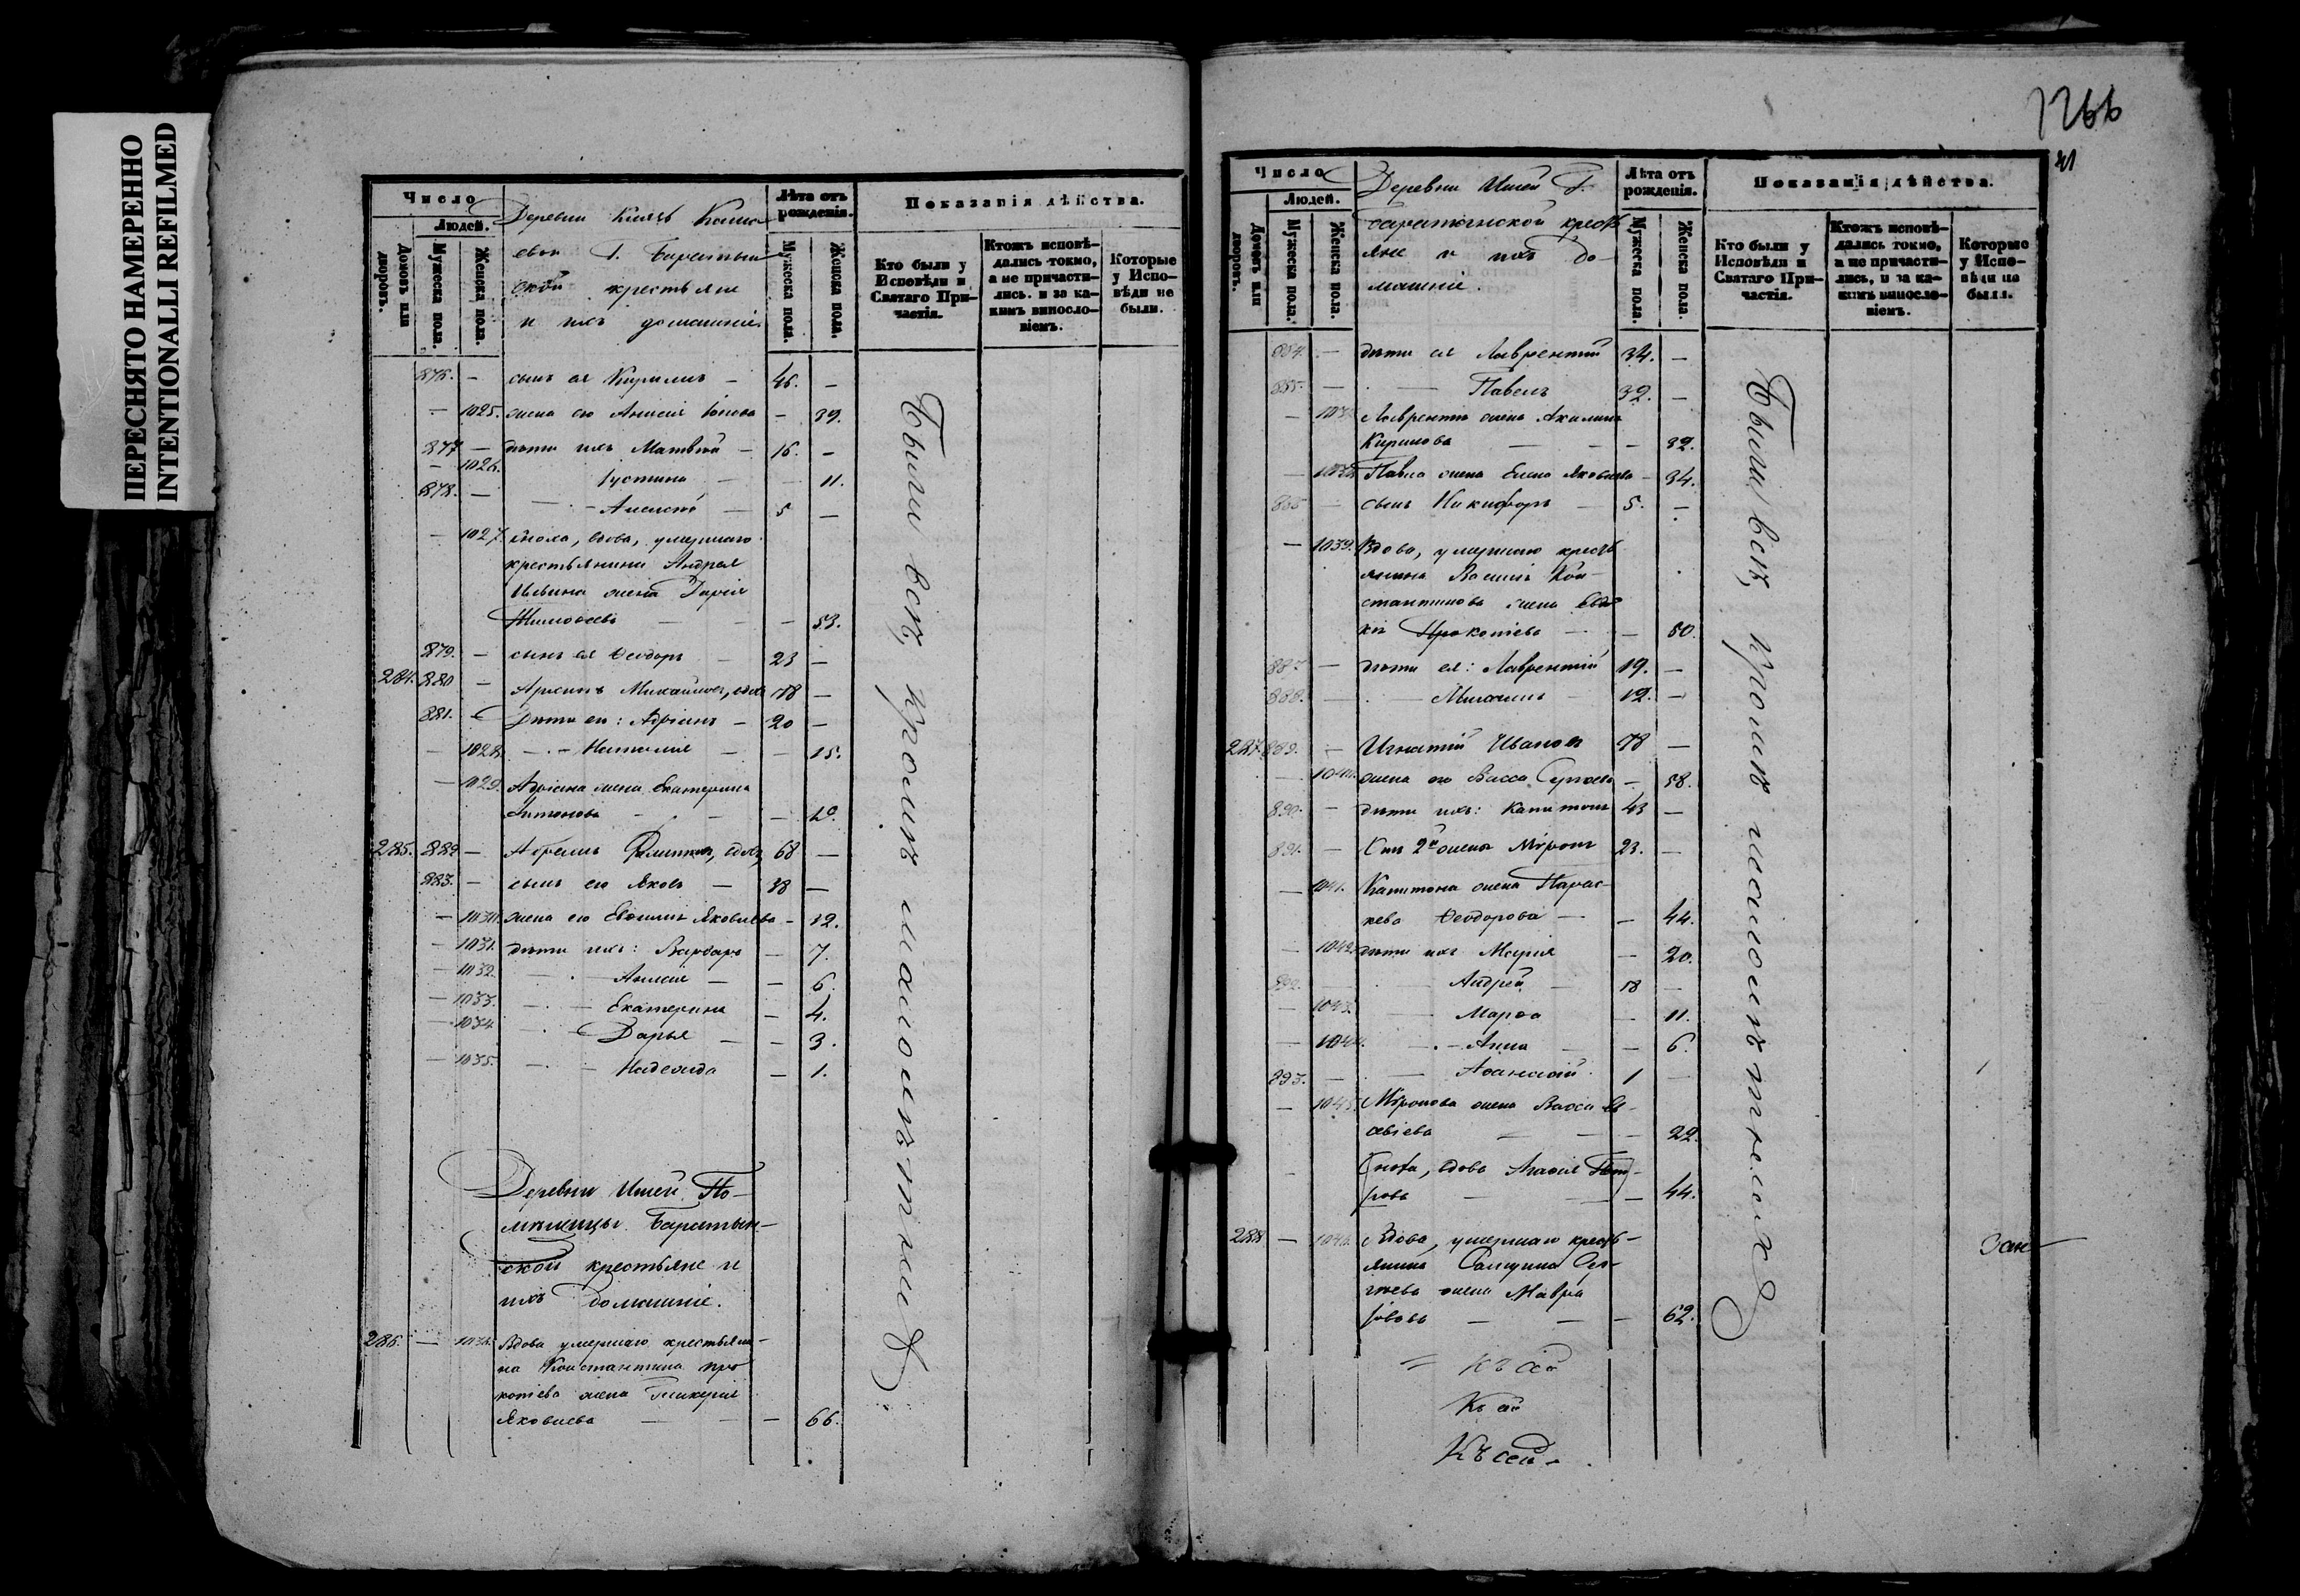 ПЕРЕСНЯТО НАМЕРЕННО
INTENTIONALLI REFILMED
Число
Людей.
Домовъ или дворовъ.
Мужеска пола.
Женска пола.
Деревни Князь
Г. Баратын-
ской крестьяне
и ихъ домашніе.
Лѣта отъ рожденія.
Мужеска пола.
Женска пола.
Показанія дѣйства.
Кто были у Исповѣди и Святаго Причастія.
Ктожъ исповѣдались токмо, а не причастились. и за какимъ винословіемъ.
Которые у Исповѣди не были.
876. — сынъ ея Кирилъ — 46. —
— 1025. жена его Анисія — 39.
877 — дѣти ихъ Матвѣй — 16. —
— 1026. Іустина — — 11.
878. — — Алексѣй — 5 —
— 1027. сноха, вдова, умершаго
крестьянина Андрея
Ильина жена Дарія
Тимоѳеева — — 53.
879. — сынъ ея Ѳеодоръ — 23 —
284. 880 — Михайловъ, вдовъ 78 —
881. — Дѣти его: Адріанъ — 20 —
— 1028. — Наталія — — 15.
— 1029. Адріана жена Екатерина
Антонова — —
285. 882 — Филиповъ, вдовъ 68 —
883. — сынъ его Яковъ — 38 —
— 1030. жена его Яковлева — 32.
— 1031. дѣти ихъ: Варвара — 7.
— 1032. — Анисія — — 6.
— 1033. — Екатерина — 4.
— 1034 — Дарья — — 3.
— 1035. — Надежда — 1.
Были всѣ, кромѣ малолѣтнихъ
Деревни Ишей По-
мѣщицы Баратын-
ской крестьяне и
ихъ домашніе.
286. — 1036. Вдова умершаго крестьяни-
на Константина Про-
копіева жена Гликерія
Яковлева — — — 66.
1266
41
Число
Людей.
Домовъ или дворовъ.
Мужеска пола.
Женска пола.
Деревни Ишей Г.
Баратынской кресть-
яне и ихъ до-
машніе.
Лѣта отъ рожденія.
Мужеска пола.
Женска пола.
Показанія дѣйства.
Кто были у Исповѣди и Святаго Причастія.
Ктожъ исповѣдались токмо, а не причастились, и за какимъ винословіемъ.
Которые у Исповѣди не были.
884. — дѣти ея Лаврентій 34. —
885. — — Павелъ 32. —
— Лаврентія жена Акилина
Кирилова — — — 32.
— 1038 Павла жена Елена Яковлева — 34.
886 — сынъ Никифоръ — 5. —
— 1039. Вдова, умершаго кресть-
янина Василія Кон-
стантинова жена Евдо-
кія Прокопіева — — 50.
887 — дѣти ея: Лаврентій 19. —
888. — — Михаилъ — 12. —
287 889. — Игнатій Ивановъ 78 —
— 1040. жена его Васса Сергѣева — 58.
890. — дѣти ихъ: Капитонъ 43 —
891. — Отъ 2й жены Миронъ 23. —
— 1041. Капитона жена Парас-
кева Ѳеодорова — — 44.
— 1042 дѣти ихъ Марія — 20.
892. — — Андрей — 18 —
— 1043. — Марѳа — 11.
— 1044. — Анна — — 6.
893. — — Аѳанасій 1 —
— 1045. Миронова жена Васса Ев-
севіева — — — 22.
Сноха, вдова Агаѳія Пет-
рова — — — 44.
288 — 1046. Вдова, умершаго кресть-
янина Сер-
гѣева жена Мавра
— — — 62.
Были всѣ, кромѣ малолѣтнихъ
Къ сей